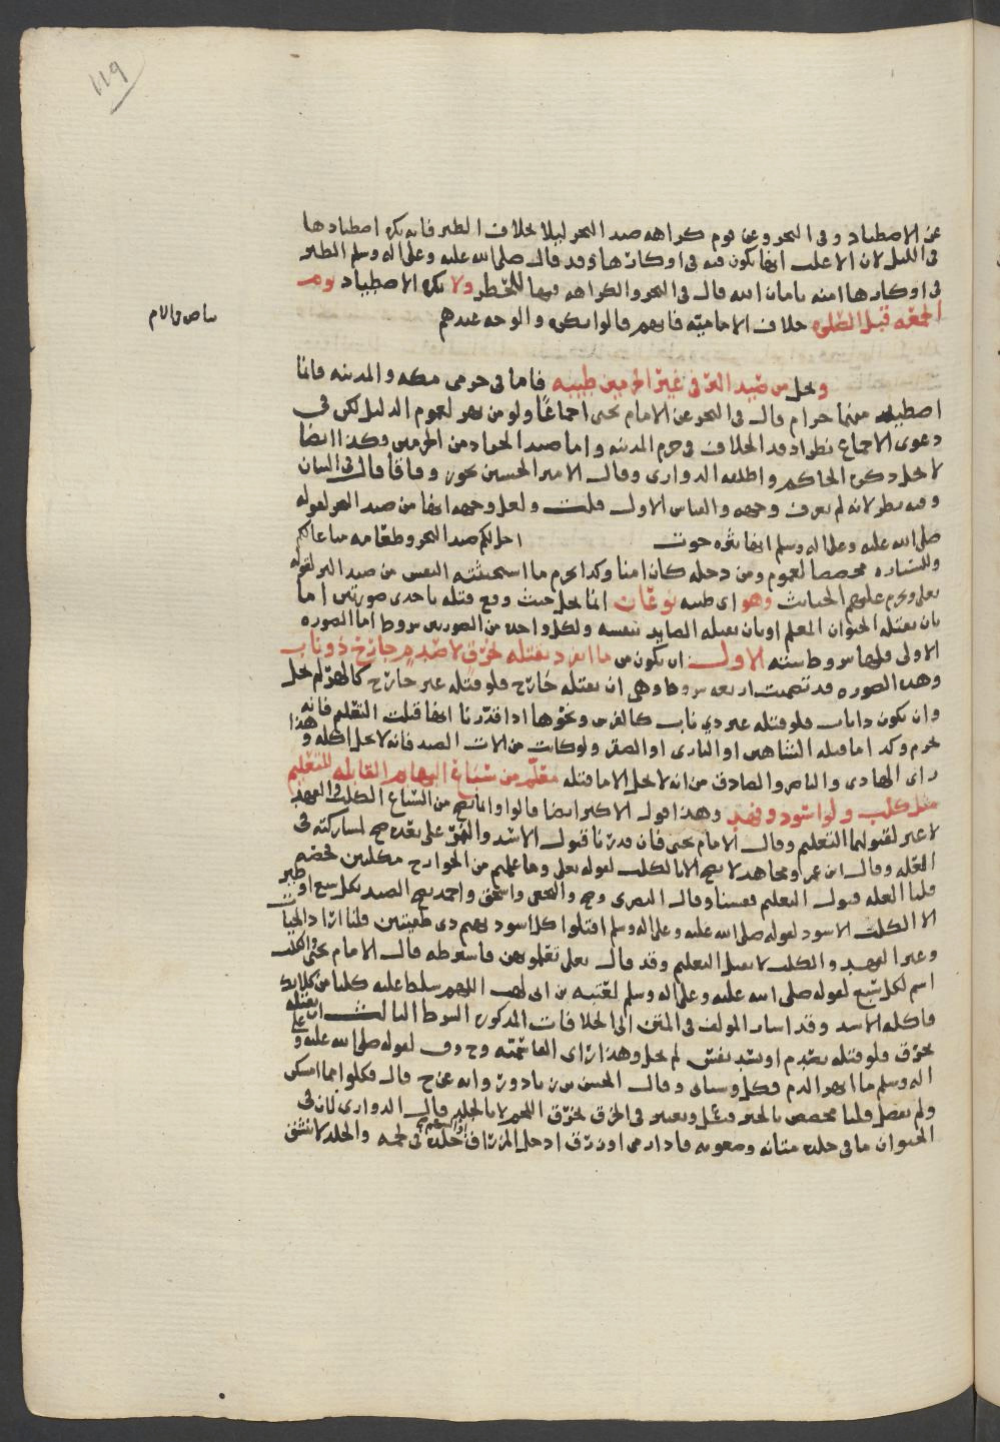 119
عن الاصطياد وفى البحر وعن قوم كراهه صيد البحر ليلا بخلاف الطير فانه يكره اصطيادها
فى الليل لان الاغلب انها يكون فيه فى اوكارها وقد قال صلى الله عليه وعلى اله وسلم الطير
فى اوكارها امنه بامان الله قال فى البحر والكراهه فيها للخطر ولا يكره الاصطياد يوم
الجمعه قبل الصلوه خلاف الاماميه فانهم قالوا يكره والوجه عندهم
بياض فى الام
ويحل من صيد البر فى غير الحرمين طيبه فاما فى حرمى مكه والمدينه فانما
اصطيد منهما حرام قال فى البحر عن الامام يحيى اجماعًا ولو من بحر لعموم الدليل لكن فى
دعوى الاجماع نظر اذ قد الخلاف فى حرم المدينه واما صيد الجراد من الحرمين فكذا ايضا
لا يحل ذكره الحاكم واطلقه الدوارى وقال الامير الحسين يجوز وفاقا قال فى البيان
وفيه نظر لانه لم يعرف وجهه والقياس الاول قلت ولعل وجهه انها من صيد البحر لقوله
صلى الله عليه وعلى اله وسلم انها نثره حوت احل لكم صيد البحر وطعامه متاعا لكم
وللسياره مخصصا لعموم ومن دخله كان امنا وكذا يحرم ما استخبثته النفس من صيد البر لقوله
تعلى ويحرم عليهم الخبائث وهو اى طيبه نوعان انما يحل حيث وقع قتله باحدى صورتين اما
بان يقتله الحيوان المعلم او بان يقتله الصايد بنفسه ولكل واحده من الصورتين شروط اما الصوره
الاولى فلها شروط سته الاول ان يكون من ما انفرد بقتله بخرق لا صدم جارح ذو ناب
وهذه الصوره قد تضمنت اربعه شروط وهى ان يقتله جارح فلو قتله غير جارح كالهر لم يحل
وان يكون ذا ناب فلو قتله غير ذي ناب كالفرس ونحوها اذا قدرنا انها قبلت التعليم فانه
يحرم وكذا ما قتله الشاهين او البازى او الصقر ولو كانت من الات الصيد فانه لا يحل اكله وهذا
راى الهادى والناصر والصادق من انه لا يحل الا ما قتله معلّم من سباع البهايم القابله للتعليم
مثل كلب ولو اسود وفهد وهذا قول الاكثر ايضا قالوا وانما يصح من السباع الكلب والفهد
لا غير لقبولهما التعليم وقال الامام يحيى فان قدرنا قبول الاسد والنمر على بعد صح لمشاركته فى
العله وقال ابن عمر ومجاهد لا يصح الا بالكلب لقوله تعلى وما علمتم من الجوارح مكلبين فخصه
قلنا العله قبول التعليم فقسنا وقال البصرى وح والنخعى واسحق واحمد يصح الصيد بكل سبع او طير
الا الكلب الاسود لقوله صلى الله عليه وعلى اله وسلم اقتلوا كل اسود بهيم ذى طفيتين قلنا اراد الحيات
وغير الفهد والكلب لا يقبل التعليم وقد قال تعلى تعلمونهن فاشترطه قال الامام يحيى والكلب
اسم لكل سبع لقوله صلى الله عليه وعلى اله وسلم لعتبه بن ابى لهب اللهم سلط عليه كلبا من كلابك
فاكله الاسد وقد اشار المولف فى المتن الى الخلافات المذكوره الشرط الثالث ان يقتله
بخرق فلو قتله بصدم او شد نفس لم يحل وهذا راى القاسميه وح وف لقوله صلى الله عليه وعلى
اله وسلم ما انهر الدم فكل وسيأتى وقال الحسن بن زياد ورواه عن ح قال فكلوا مما امسكن
ولم يفصل قلنا مخصص بالخبر ويعتبر فى الخرق بخرق اللحم لا بالجلد قال الدوارى لان فى
الحيوان ما فى جلده متانه وصعوبه فاذا رمى او زرق ادخل المزراق جلده فى لحمه والجلد لا ينشق